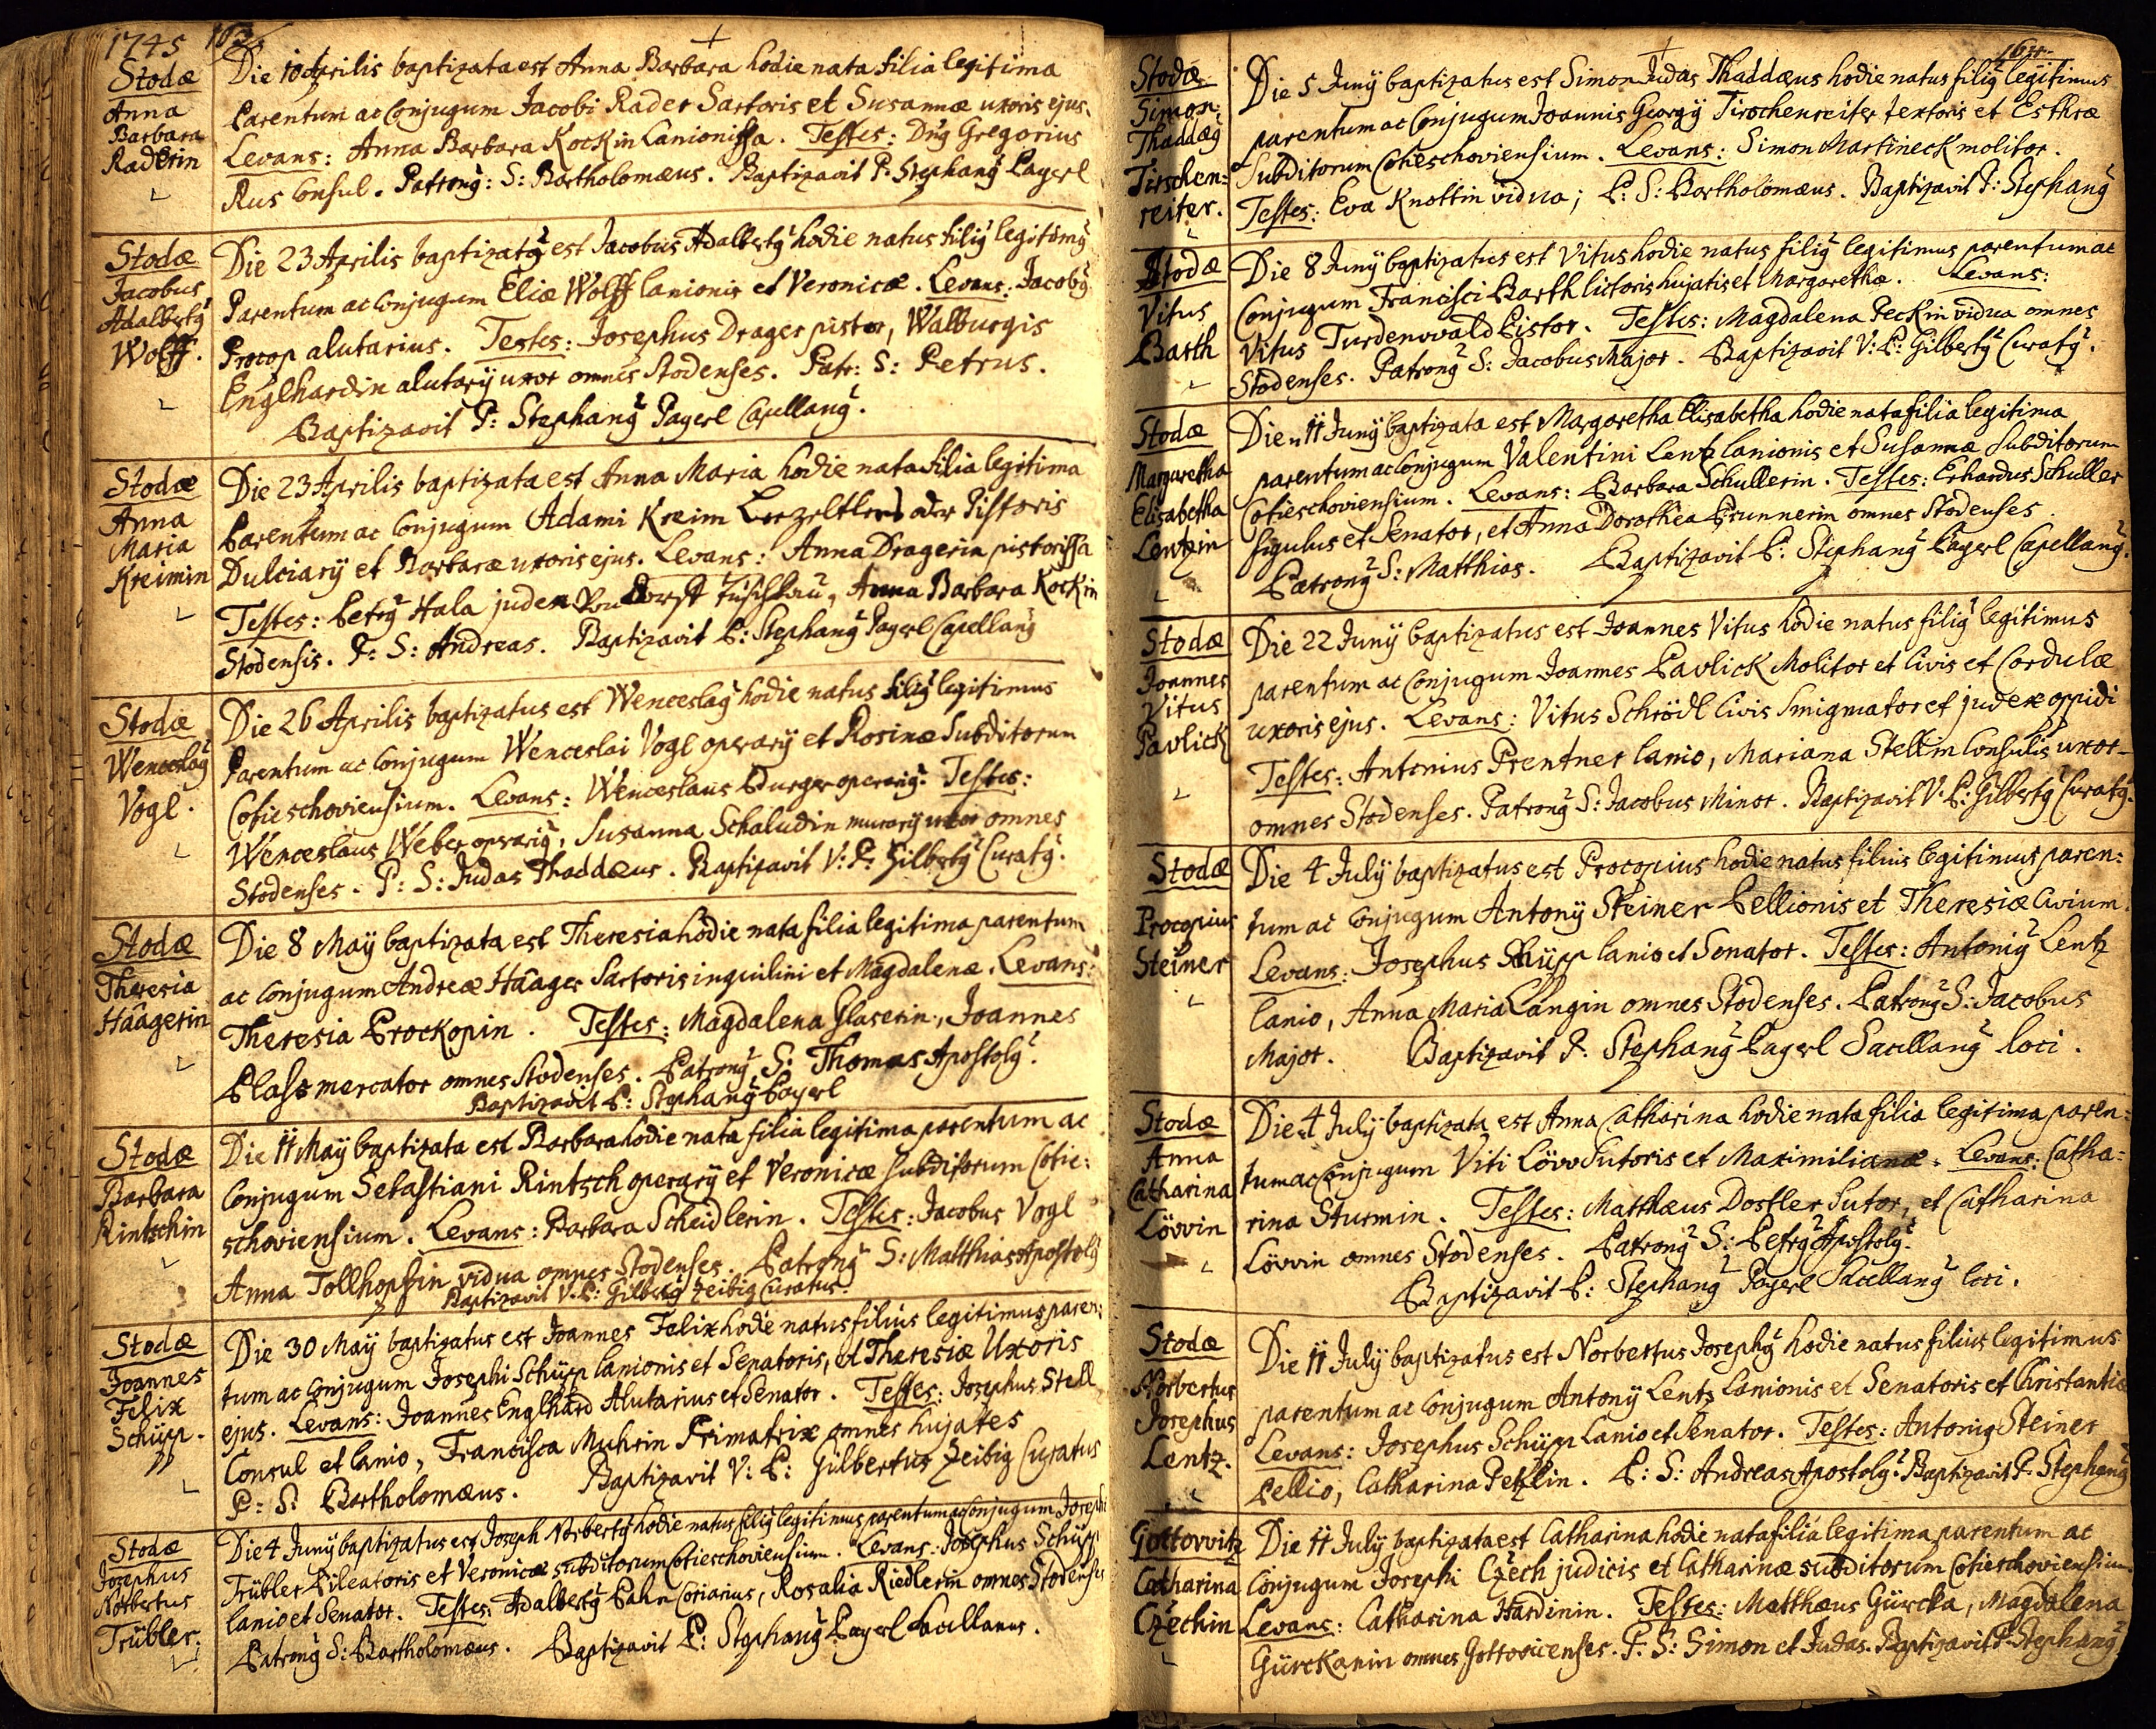 1745 163
Stodæ
Anna
Barbara
Raderin
Die 10 Aprilis baptizata est Anna Barbara hodie nata filia legitima
Parentum ac Conjugum Jacobi Rader Sartoris et Susannæ uxoris ejus.
Levans: Anna Barbara Kockin Lanionissa. Testes: Dnus Gregorius
Rus Consul. Patronus: S: Bartholomæus. Baptizavit P. Stephanus Pagerl
Stodæ
Jacobus
Adalbertus
Wolff.
Die 23 Aprilis baptizatus est Jacobus Adalbertus hodie natus filius legitimus
Parentum ac Conjugum Eliæ Wolff lanionis et Veronicæ. Levans: Jacobus
Procop alutarius. Testes: Josephus Drager pistor, Walburgis
Englhardin alutarij uxor omnes Stodenses. Patr: S: Petrus.
Baptizavit P: Stephanus Pagerl Capellanus.
Stodæ
Anna
Maria
Kreimin
Die 23 Aprilis baptizata est Anna Maria hodie nata filia legitima
Parentum ac Conjugum Adami Kreim Lezeltler oder Pistoris
Dulciarij et Barbaræ uxoris ejus. Levans: Anna Dragerin pistorissa
Testes: Petrus Hala judex Dorff Tuschkau, Anna Barbara Kockin
Stodensis. P: S: Andreas. Baptizavit P: Stephanus Pagerl Capellanus
Stodæ
Wenceslaus
Vogl.
Die 26 Aprilis baptizatus est Wenceslaus hodie natus filius legitimus
Parentum ac Conjugum Wenceslai Vogl operarij et Rosinæ Subditorum
Cotieschoviensium. Levans: Wenceslaus Burger operarius. Testes:
Wenceslaus Weber operarius, Susanna Schaludin murarij uxor omnes
Stodenses. P: S: Judas Thaddæus. Baptizavit V: P: Gilbertus Curatus.
Stodæ
Theresia
Haagerin
Die 8 Maij baptizata est Theresia hodie nata filia legitima parentum
ac Conjugum Andreæ Haager Sartoris inquilini et Magdalenæ. Levans:
Theresia Prockopin. Testes: Magdalena Glaserin, Joannes
Plass mercator omnes Stodenses. Patronus S: Thomas Apostolus.
Baptizavit P: Stephanus Pagerl
Stodæ
Barbara
Rintschin
Die 11 Maij baptizata est Barbara hodie nata filia legitima parentum ac
Conjugum Sebastiani Rintsch operarij et Veronicæ subditorum Cotie:
schoviensium. Levans: Barbara Scheidlerin. Testes: Jacobus Vogl
Anna Tollhopfin vidua omnes Stodenses. Patronus S: Matthias Apostolus
Baptizavit V: P: Gilbertus Zeibig Curatus.
Stodæ
Joannes
Felix
Schüpp.
Die 30 Maij baptizatus est Joannes Felix hodie natus filius legitimus paren:
tum ac Conjugum Josephi Schüpp lanionis et Senatoris, et Theresiæ Uxoris
ejus. Levans: Joannes Englhard Alutarius et Senator. Testes: Josephus Stell
Consul et lanio, Francisca Muhrin Primatrix omnes hujates
P: S: Bartholomæus. Baptizavit V: P: Gilbertus Zeibig Curatus
Stodæ
Josephus
Norbertus
Trübler.
Die 4 Junij baptizatus est Joseph Norbertus hodie natus filius legitimus parentum ac Conjugum Josephi
Trübler Pileatoris et Veronicæ subditorum Cotieschoviensium. Levans: Josephus Schüpp
lanio et Senator. Testes: Adalbertus Pahn Coriarius, Rosalia Riedlerin omnes Stodenses
Patronus S: Bartholomæus. Baptizavit P: Stephanus Pagerl Sacellanus.
164
Stodæ
Simon:
Thaddæus
Tirschen:
reiter.
Die 5 Junij baptizatus est Simon Judas Thaddæus hodie natus filius legitimus
parentum ac Conjugum Joannis Georgij Tirschenreiter textoris et Esthræ
Subditorum Cotieschoviensium. Levans: Simon Martineck molitor.
Testes: Eva Knottin vidua; P: S: Bartholomæus. Baptizavit P: Stephanus
Stodæ
Vitus
Barth
Die 8 Junij baptizatus est Vitus hodie natus filius legitimus parentum ac
Conjugum Francisci Barth lictoris hujatis et Margarethæ. Levans:
Vitus Turdenwald Pistor. Testes: Magdalena Peckin vidua omnes
Stodenses. Patronus S: Jacobus Major. Baptizavit V: P: Gilbertus Curatus.
Stodæ
Margaretha
Elisabetha
Lentzin
Die 11 Junij baptizata est Margaretha Elisabetha hodie nata filia legitima
parentum ac Conjugum Valentini Lentz lanionis et Susannæ subditorum
Cotieschoviensium. Levans: Barbara Schullerin. Testes: Erhardus Schuller
figulus et Senator, et Anna Dorothea Prunnerin omnes Stodenses.
Patronus S: Matthias. Baptizavit P: Stephanus Pagerl Capellanus.
Stodæ
Joannes
Vitus
Pavlick
Die 22 Junij baptizatus est Joannes Vitus hodie natus filius legitimus
parentum ac Conjugum Joannes Pavlick Molitor et Civis et Cordulæ
uxoris ejus. Levans: Vitus Schrödl Civis Smigmator et judex oppidi
Testes: Antonius Prentner lanio, Mariana Stellin Consulis uxor
omnes Stodenses. Patronus S: Jacobus Minor. Baptizavit V: P: Gilbertus Curatus.
Stodæ
Procopius
Steiner
Die 4 Julij baptizatus est Procopius hodie natus filius legitimus paren:
tum ac Conjugum Antonij Steiner Pellionis et Theresiæ Civium.
Levans: Josephus Schüpp lanio et Senator. Testes: Antonius Lentz
lanio, Anna Maria Langin omnes Stodenses. Patronus S: Jacobus
Major. Baptizavit P: Stephanus Pagerl Sacellanus loci.
Stodæ
Anna
Catharina
Lövvin
Die 4 Julij baptizata est Anna Catharina hodie nata filia legitima paren:
tum ac Conjugum Viti Lövv Sutoris et Maximilianæ. Levans: Catha:
rina Sturmin. Testes: Matthæus Dostler Sutor, et Catharina
Lövvin omnes Stodenses. Patronus S: Petrus Apostolus.
Baptizavit P: Stephanus Pagerl Sacellanus loci.
Stodæ
Norbertus
Josephus
Lentz.
Die 11 Julij baptizatus est Norbertus Josephus hodie natus filius legitimus
parentum ac Conjugum Antonij Lentz Lanionis et Senatoris et Christantiæ
Levans: Josephus Schüpp Lanio et Senator. Testes: Antonius Steiner
Pellio, Catharina Petzlin. P: S: Andreas Apostolus. Baptizavit P. Stephanus
Gottovvitz
Catharina
Czechin
Die 11 Julij baptizata est Catharina hodie nata filia legitima parentum ac
Conjugum Josephi Czech judicis et Catharinæ subditorum Cotieschoviensium
Levans: Catharina Hardinin. Testes: Matthæus Gürcka, Magdalena
Gürckanin omnes Gottovicenses. P: S: Simon et Judas. Baptizavit P. Stephanus